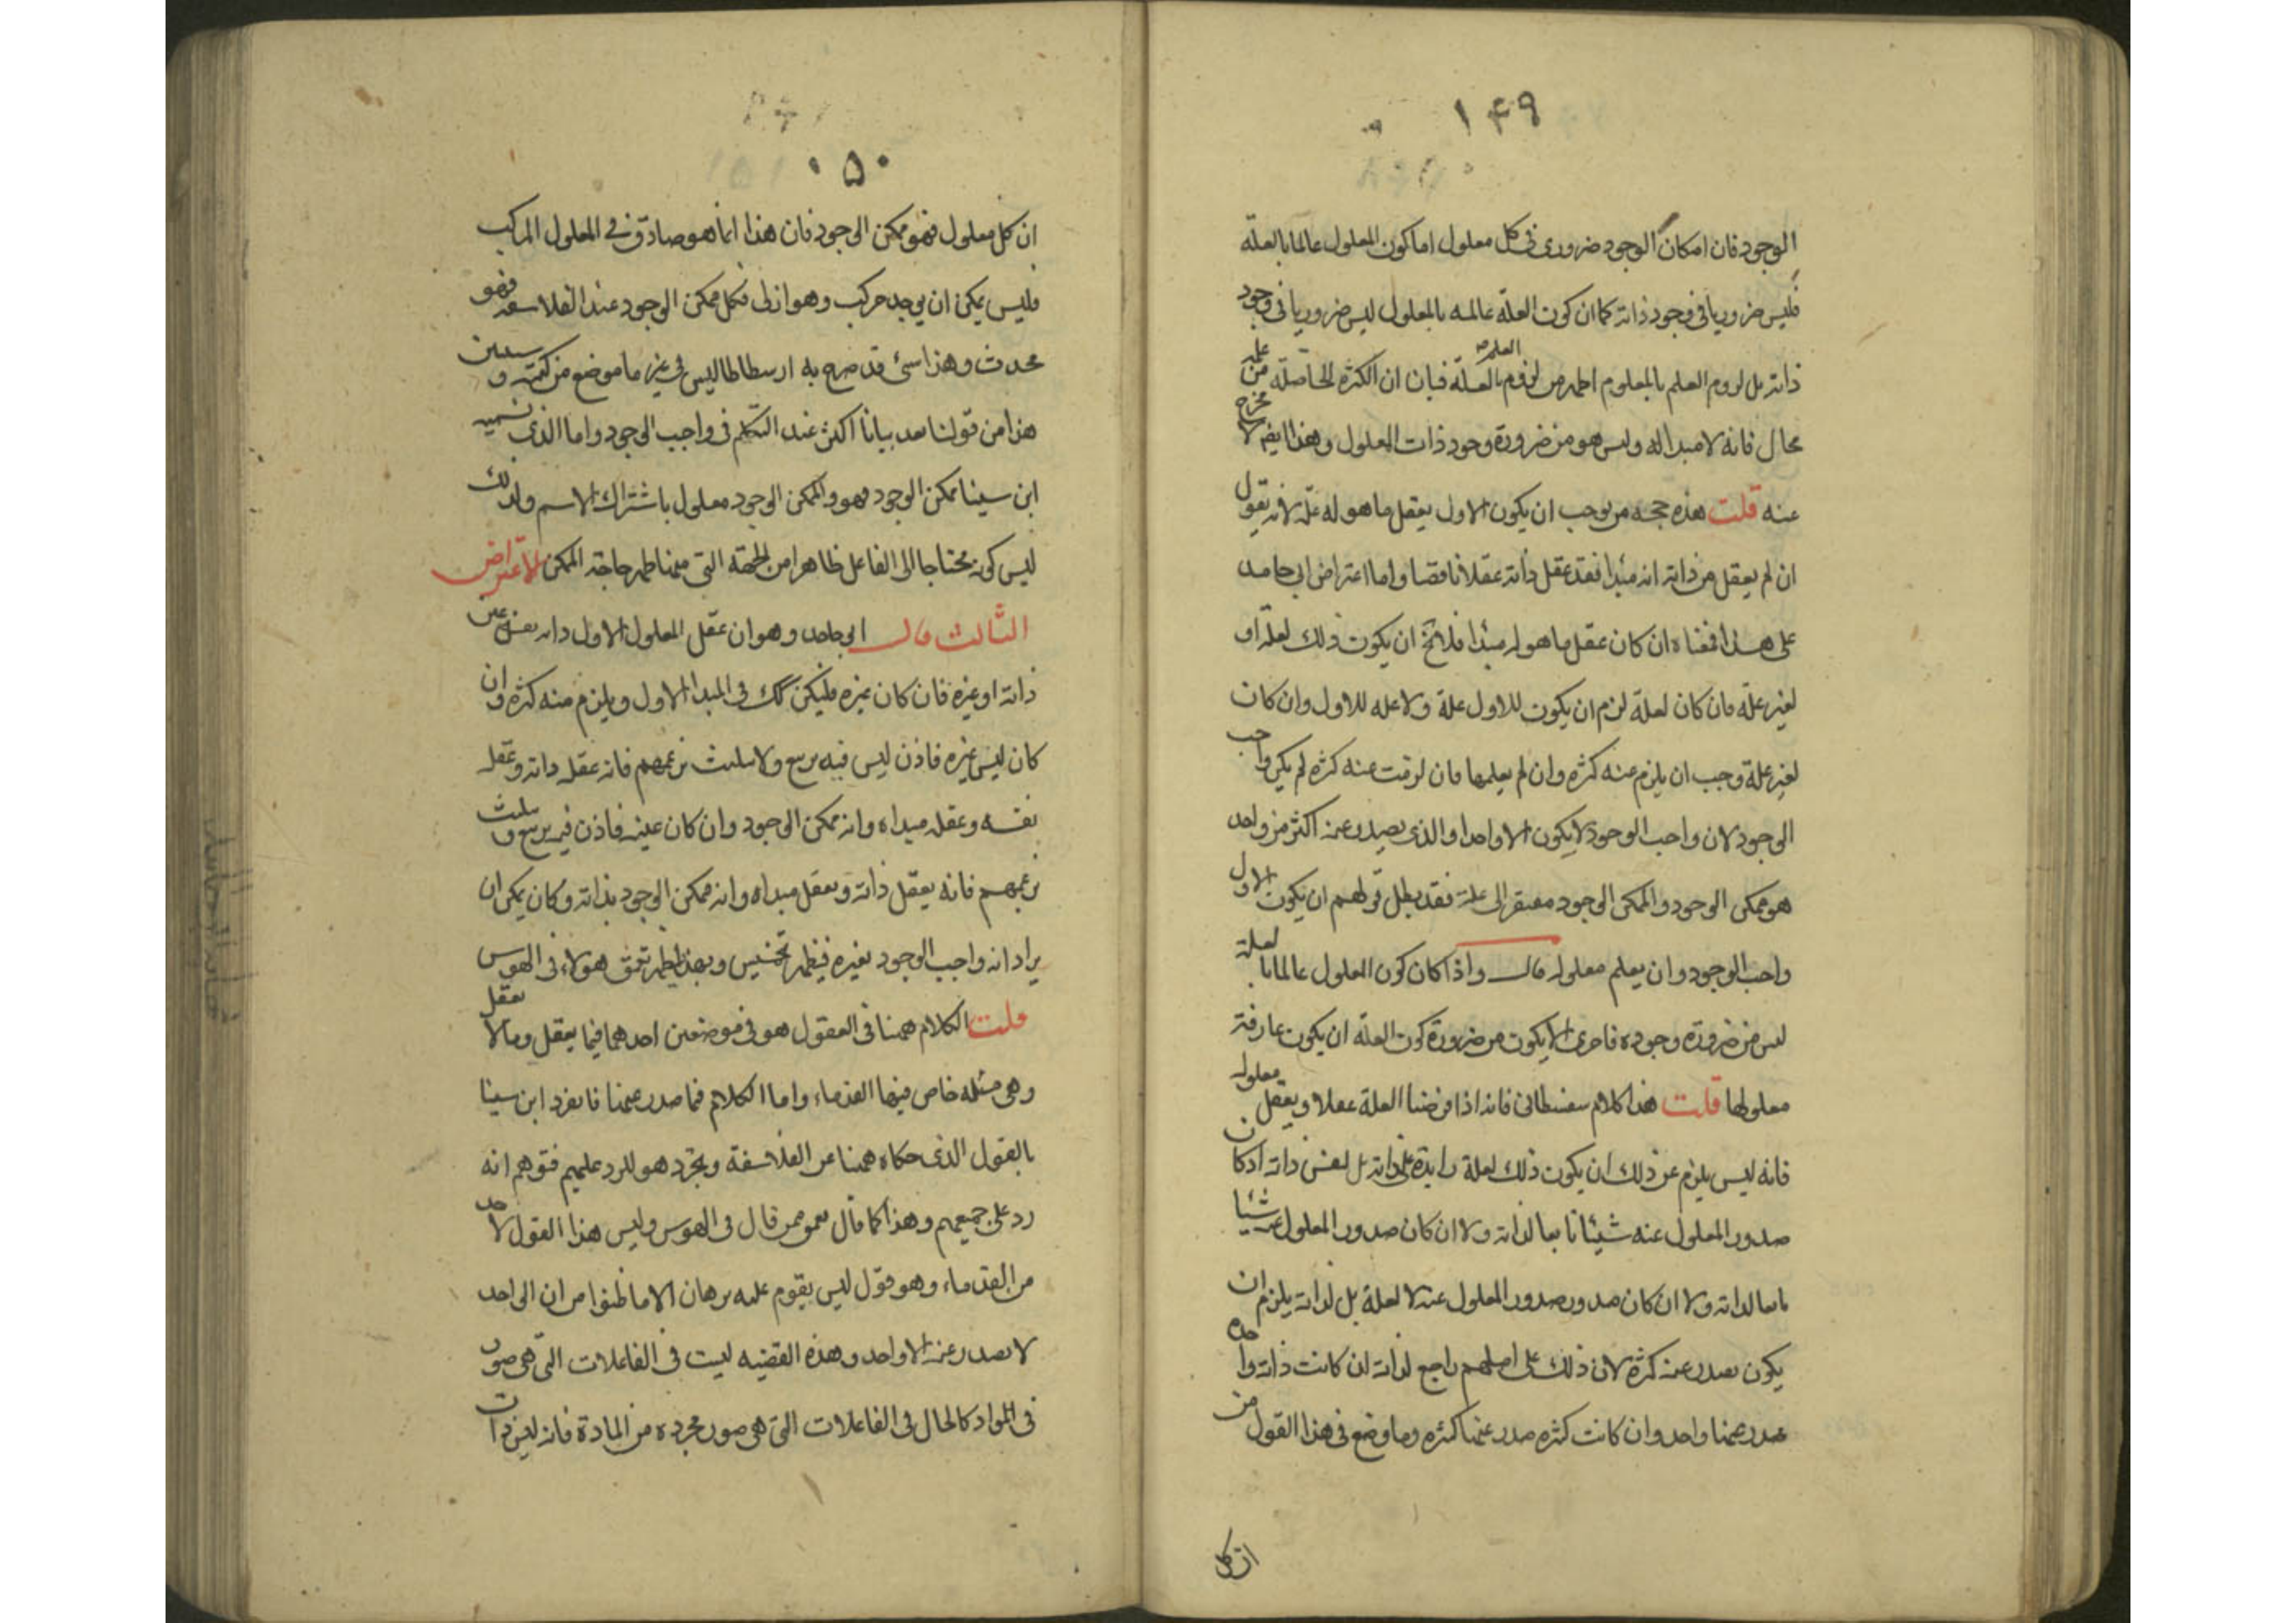 ١٤٩
الوجود فان امكان الوجود ضرورى فى كل معلول اما كون المعلول عالما بالعلة
فليس ضروريا فى وجود ذاته كما ان كون العلة عالمه بالمعلول ليس ضروريا فى وجود
ذاته بل لزوم العلم بالمعلوم اظهر من لزوم العلم بالعلة فبان ان الكثرة الحاصلة من علمه
محال فانه لا مبدا له وليس هو من ضرورة وجود ذات المعلول وهذا ايضا لا مخرج
عنه قلت هذه حجه من يوجب ان يكون الاول يعقل ما هو له علة لانه يقول
ان لم يعقل من ذاته انه مبدا فقد عقل ذاته عقلا ناقصا واما اعتراض ابى حامد
على هذا فمعناه ان كان عقل ما هو له مبدا فلا يخ ان يكون ذلك لعلة او
لغير علة فان كان لعلة لزم ان يكون للاول علة ولا عله للاول وان كان
لغير علة وجب ان يلزم عنه كثره وان لم يعلمها فان لزمت عنه كثره لم يكن واجب
الوجود لان واجب الوجود لا يكون الا واحدا والذى يصدر عنه اكثر من واحد
هو ممكن الوجود والممكن الوجود مفتقر الى علة فقد بطل قولهم ان يكون الاول
واجب الوجود وان يعلم معلوله قال واذا كان كون المعلول عالما بالعلة
ليس من ضرورة وجوده فاحرى الا يكون من ضرورة كون العلة ان يكون عارفة
معلولها قلت هذا كلام سفسطانى فانه اذا فرضنا العلة عقلا ويعقل معلوله
فانه ليس يلزم عن ذلك ان يكون ذلك لعلة زايدة على ذاته بل لنفس ذاته اذ كان
صدور المعلول عنه شيئا تابعا لذاته ولا ان كان صدور المعلول عنه شيئا
تابعا لذاته ولا ان كان صدور صدور المعلول عنه لا لعلة بل لذاته يلزم ان
يكون يصدر عنه كثرة لان ذلك على اصلهم راجع لذاته ان كانت ذاته واحده
صدر عنها واحد وان كانت كثره صدر عنها كثره وما وضع فى هذا القول من
ان كل
١٥٠
ان كل معلول فهو ممكن الوجود فان هذا انما هو صادق فى المعلول المركب
فليس يمكن ان يوجد مركب وهو ازلى فكل ممكن الوجود عند الفلاسفه فهو
محدث وهذا شئ قد صرح به ارسطاطاليس فى غير ما موضع من كتبه وسيبين
هذا من قولنا بعد بيانا اكثر عند التكلم فى واجب الوجود واما الذى يسميه
ابن سينا ممكن الوجود فهو والممكن الوجود معلول باشتراك الاسم ولذلك
ليس كونه محتاجا الى الفاعل ظاهرا من الجهة التى منها ظهر حاجة الممكن الاعتراض
الثالث قال ابو حامد وهو ان عقل المعلول الاول ذاته نفس عين
ذاته او غيره فان كان غيره فليكن كك فى المبدا الاول ويلزم منه كثره وان
كان ليس غيره فاذن ليس فيه تربيع ولا تثليث بزعمهم فانه عقله ذاته وعقله
نفسه وعقله مبداه وانه ممكن الوجود وان كان عينه فاذن فيه تربيع وتثليث
بزعمهم فانه يعقل ذاته ويعقل مبداه وانه ممكن الوجود بذاته وكان يمكن ان
يراد انه واجب الوجود بغيره فيظهر تخميس وبهذا يظهر تعمق هولاء فى الهوس
قلت الكلام ههنا فى العقول هو فى موضعين احدهما فيما يعقل وما لا يعقل
وهى مسئله خاض فيها القدماء واما الكلام فيما صدر عنها فانفرد ابن سينا
بالقول الذى حكاه ههنا عن الفلاسفة وتجرد هو للرد عليهم فتوهم انه
رد على جميعهم وهذا كما قال تعمق ممن قال فى الهوس وليس هذا القول لاحد
من القدماء وهو قول ليس يقوم عليه برهان الا ما ظنوا من ان الواحد
لا يصدر عنه الا واحد وهذه القضيه ليست فى الفاعلات التى هى صور
فى المواد كالحال فى الفاعلات التى هى صور مجرده من المادة فانه لغير ذات